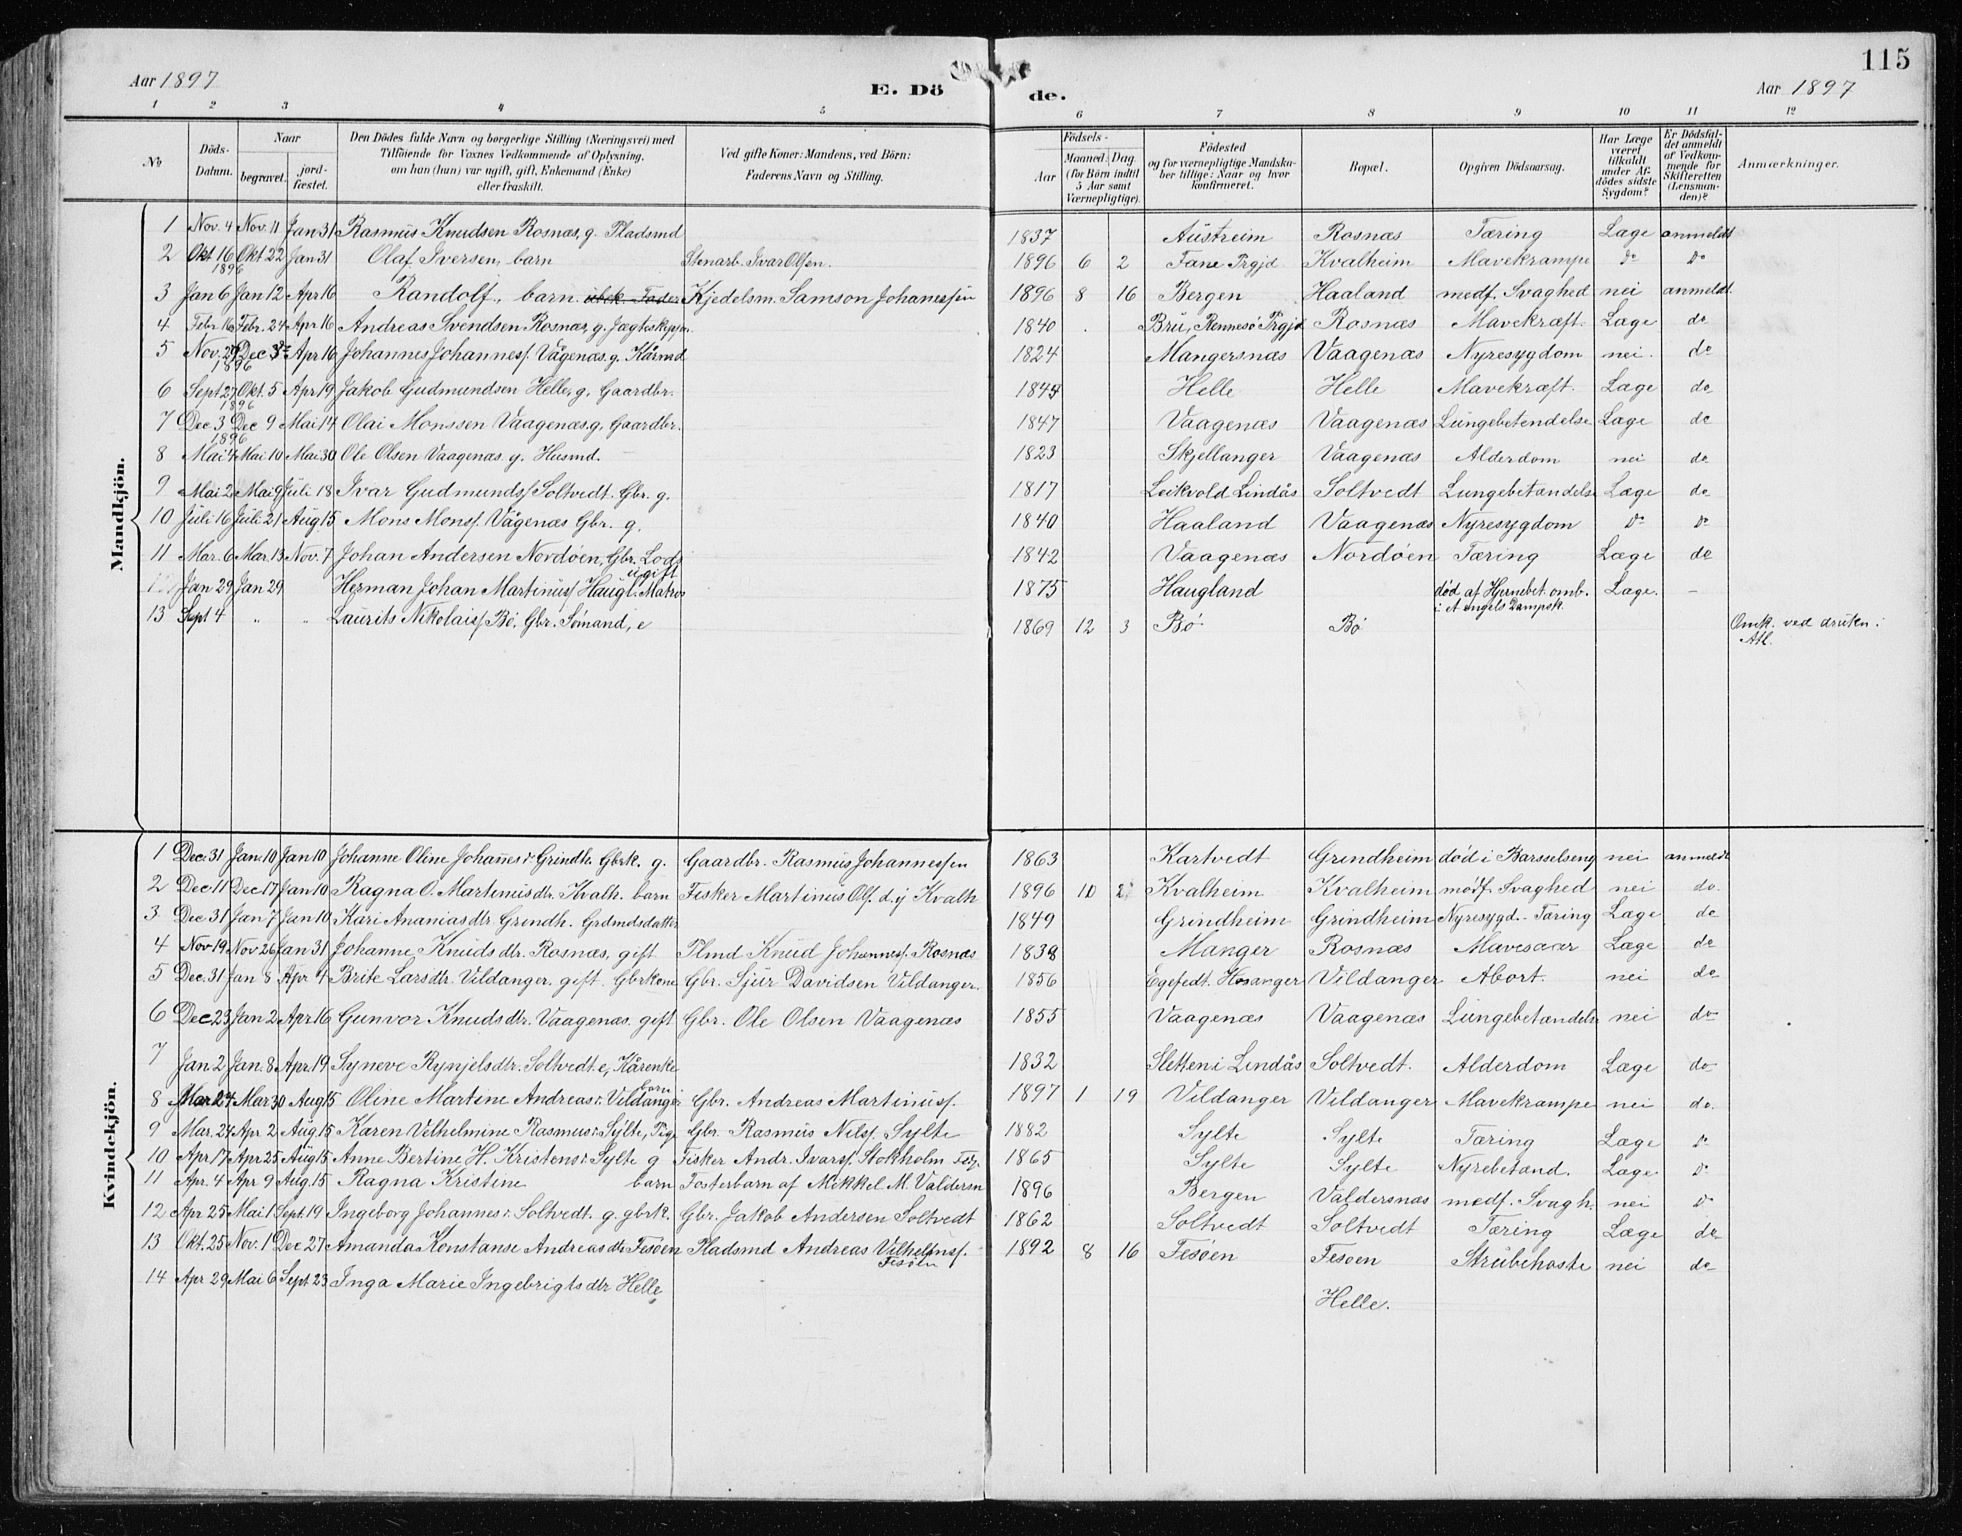 115
Aar 1897 E. Dö de. Aar 1897
1 2 3 4 5 6 7 8 9 10 11 12
No
Döds-Datum.
Naar
begravet. jordfæstet.
Den Dödes fulde Navn og borgerlige Stilling (Næringsvei) med Tilföiende för Voxnes Vedkommende af Oplysning, om han (hun) var ugift, gift, Enkemand (Enke) eller fraskilt.
Ved gifte Koner: Mandens, ved Börn: Faderens Navn og Stilling.
Födsels-
Aar Maaned. Dag. (for Börn indtil 5 Aar samt Værnepligtige).
Födested og for værnepligtige Mandskaber tillige: Naar og hvor konfirmeret.
Bopæl.
Opgiven Dödsaarsag.
Har Læge været tilkaldt under Afdödes sidste Sygdom?
Er Dödsfaldet anmeldt af Vedkommende for Skifteretten (Lensmanden)?
Anmærkninger.
Mandkjön.
1 Nov. 4 Nov. 11 Jan 31 Rasmus Knudsen Rosnæs, g. Pladsmd 1837 Austreim Rosnæs Tæring Læge anmeldt
2 Okt 16 1896 Okt 22 Jan 31 Olaf Iversen, barn Stenarb. Ivar Olsen. 1896 6 2 Fane Prgjd Kvalheim Mavekrampe do do
3 Jan 6 Jan 12 Apr 16 Randolf, barn ubek. Fader Kjedelsm. Samson Johanessen 1896 8 16 Bergen Haaland medf. Svaghed nei anmeldt.
4 Febr. 16 Febr. 24 Apr 16 Andreas Svendsen Rosnæs, g. Jægteskipp. 1840 Bru, Rennesø Prgjd Rosnæs Mavekræft. Læge do
5 Nov. 29 1896 Dec 3 Apr 16 Johannes Johanness. Vågenæs, g. Kårmd 1824 Mangersnæs Vaagenæs Nyresygdom nei. do
6 Sept 27 1896 Okt. 5 Apr 19 Jakob Gudmundsen Helle, g. Gaardbr. 1844 Helle Helle Mavekræft. Læge do
7 Dec 3 1896 Dec 9 Mai 14 Olai Monssen Vaagenæs, g. Gaardbr. 1847 Vaagenæs Vaagenæs Lungebetendelse Læge do
8 Mai 4 Mai 10 Mai 30 Ole Olsen Vaagenæs g. Husmd. 1823 Skjellanger Vaagenæs Alderdom nei do
9 Mai 2 Mai 9 Juli 18 Ivar Gudmunds. Soltvedt. Gbr. g. 1817 Leikvold Lindås Soltvedt Lungebetændelse Læge do
10 Juli 16 Juli 21 Aug. 15 Mons Mons. Vågenæs Gbr. g. 1840 Haaland Vaagenæs Nyresygdom do do
11 Mar. 6 Mar. 13 Nov. 7 Johan Andersen Nordøen, Gbr. Lods 1842 Vaagenæs Nordøen Tæring Læge do
Jan 29 Jan 29 Herman Johan Martinus. Haugl. Matros ugift 1875 Haugland død af Hjernebet. omb. i A Angels Dampsk. Læge. –
13 Sept 4 " " Laurits Nikolais. Bø, Gbr. Sømand, e 1869 12 3 Bø Bø Omk. ved drukn. i Atl.
Kvindekjön.
1 Dec. 31 Jan. 10 Jan 10 Johanne Oline Johannesdr Grindh. Gbrk. g. Gaardbr. Rasmus Johannessen 1863 Kartvedt Grindheim død i Barselseng nei anmeldt
2 Dec 11 Dec 17 Jan 10 Ragna O. Martinusdtr. Kvalh. barn Fisker Martinus Ols. d. y Kvalh 1896 10 2 Kvalheim Kvalheim medf. Svaghed nei do.
3 Dec 31 Jan 7 Jan 10 Kari Ananiasdtr Grindh. Grdmdsdatter 1849 Grindheim Grindheim Nyresygd. - Tæring Læge do
4 Nov 19 Nov 26 Jan 31 Johanne Knudsdtr. Rosnæs, gift Plmd Knud Johanness. Rosnæs 1838 Manger Rosnæs Mavesaar Læge do
5 Dec. 31 Jan 8 Apr 4 Brite Larsdtr. Vildanger. gift Gbrkone Gbr. Sjur Davidsen Vildanger. 1856 Egefedt. Hosanger Vildanger Abort. nei do
6 Dec 23 Jan 2 Apr 16 Gunvor Knudsdtr. Vaagenæs. gift Gbr. Ole Olsen Vaagenæs 1855 Vaagenæs Vaagenæs Lungebetændelse nei do
7 Jan 2 Jan. 8 Apr. 19 Syneve Rynjelsdtr. Soltvedt e, Kårenke 1832 Sletten i Lindås Soltvedt. Alderdom Læge do
8 Mar 24 Mar 30 Aug 15 Oline Martine Andreasdr. Vildanger barn Gbr. Andreas Martinus. 1897 1 19 Vildanger Vildanger Mavekrampe nei do.
9 Mar. 24 Apr 2 Aug. 15 Karen Vilhelmine Rasmusdr. Sylte, Pige Gbr. Rasmus Nils. Sylte 1882 Sylte Sylte Tæring Læge do
10 Apr 17 Apr 25 Aug 15 Anne Bertine H. Kristensdr. Sylte g Fisker Andr. Ivars. Stokholm 1865 Sylte Sylte Nyrebetænd. Læge do
11 Apr. 4 Apr 9 Aug. 15 Ragna Kristine barn Fosterbarn af Mikkel M. Valdersn 1896 Bergen Valdersnæs medf. Svagh. nei do
12 Apr 25 Mai 1 Sept. 19 Ingeborg Johannesdr. Soltvedt. g. gbrk. Gbr. Jakob Andersen Soltvedt 1862 Soltvedt Soltvedt Tæring Læge do
13 Okt. 25 Nov. 1 Dec 27 Amanda Konstanse Andreasdtr Fesøen Pladsmd Andreas Vilhelms. Fesøen 1892 8 16 Fesøen Fesøen Strubehoste nei do
14 Apr 29 Mai 6 Sept. 23 Inga Marie Ingebrigtsdtr Helle Helle.